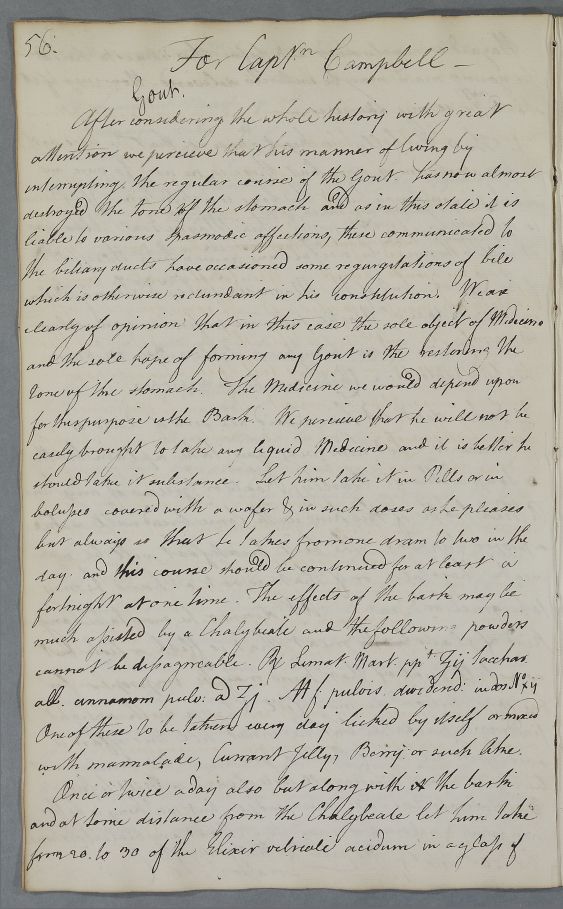 56.
For Captn Campbell —
Gout.
After considering the whole history with great
attention we percieve that his manner of living by
interrupting the regular course of the Gout has now almost
destroyed the tone of the stomach and as in this state it is
liable to various spasmodic affections, these communicated to
the biliary ducts have occasioned some regurgitations of bile
which is otherwise redundant in his constitution. We are
clearly of opinion that in this case the sole object of Medicine
and the sole hope of forming any Gout is the restoring the
tone of the stomach. The Medicine we would depend upon
for this purpose is the Bark. We percieve that he will not be
easily brought to take any liquid Medicine and it is better he
should take it substance. Let him take it in Pills or in
bolusses covered with a wafer & in such doses as he pleases
but always so that he takes from one dram to two in the
day and this course should be continued for at least a
fortnight at one time. The effects of the bark may be
much assisted by a Chalybeate and the following powders
cannot be disagreeable. ℞ Limat. Mart. ppt ʒij Sacchar.
alb. cinnamom pulv. a ʒj. M f. pulvis. dividend: in dos. No xij
One of these to be taken every day licked by itself or mixed
with marmalade, Currant Jelly, Berry or such like.
Once or twice a day also but along with the bark
and at some distance from the Chalybeate let him take
from 20. to 30 of the Elixir vitriole acidum in a glass of